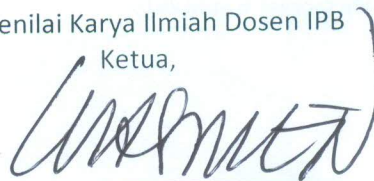 enilai Karya Ilmiah Dosen IPB
Ketua,